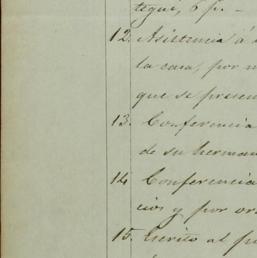 tegui, 6 p. –
12. Asistencia á
la casa, por
que se presen
13. Conferencia
de su herman
14 Conferencia
cios y por or
15. Escrito al